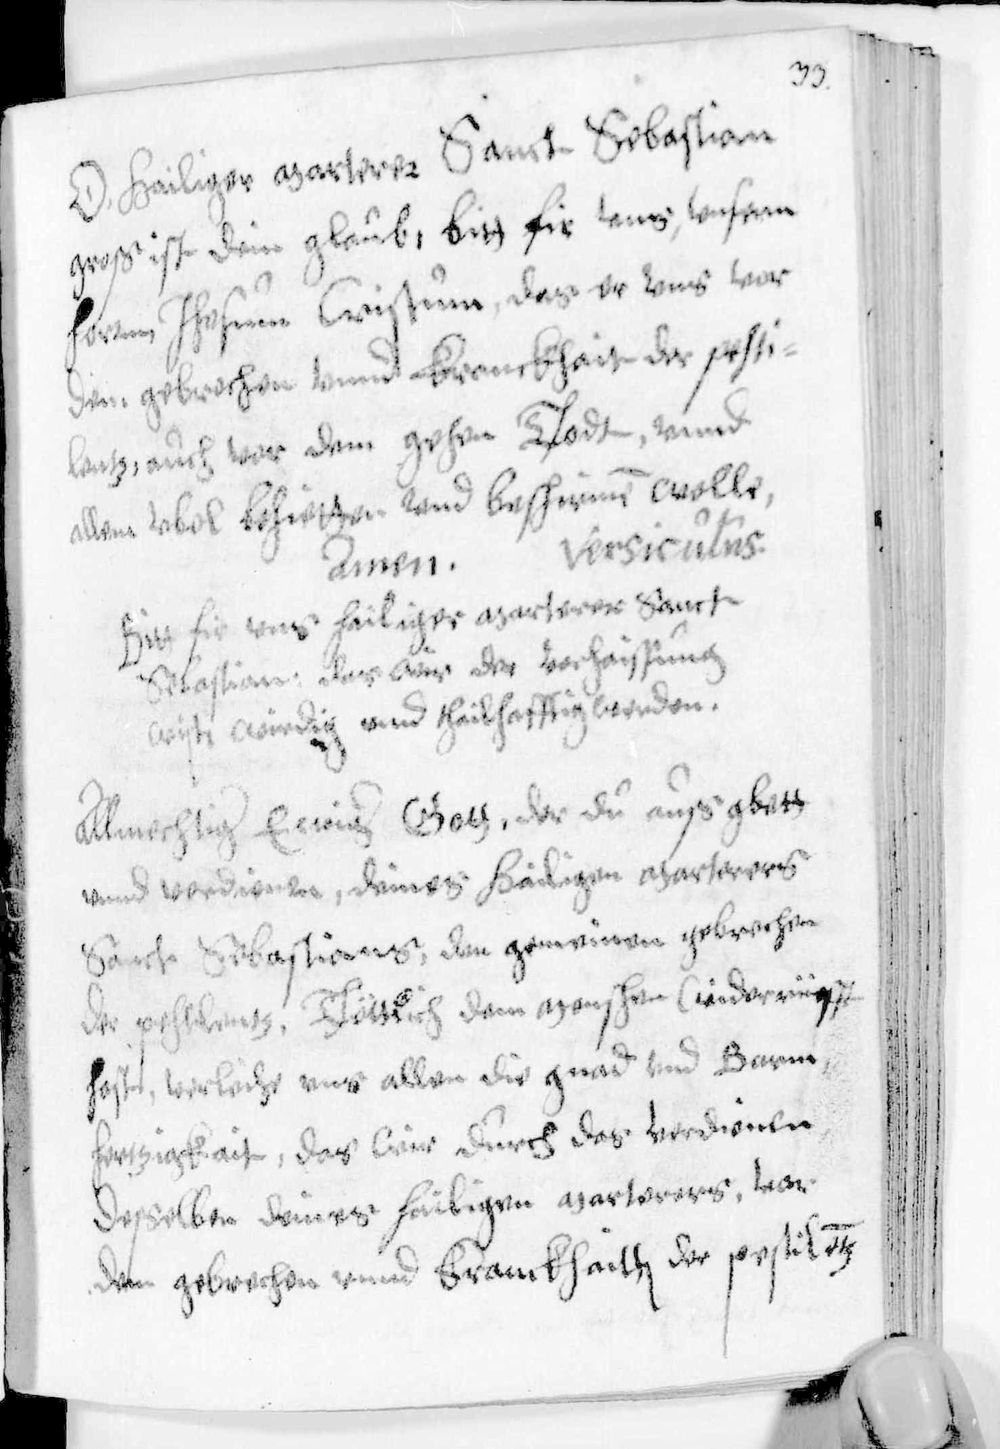 33.
O. Hailiger marterer Sanct Sebastian
groß ist dein glaub, bitt fir vns, vnsern
herrn Jhesum Cristum, das er vns vor
den gebrechen vnnd Kranckhait der pesti-
lentz, auch vor dem gehen Todt, vnnd
allem vbel behietten vnd beschirmē wolle,
Amen. Versiculus.
Bitt fir vns hailiger marterer Sanct
Sebastian: das wir der verhaissung
cristi wirdig vnd thailhafftig werden.
Allmechtig Ewig Gott, der du auss gbett
vnnd verdienen, deines Hailigen marterers
Sanct Sebastians, den gemeinen gebrechen
der pestilentz, Töttlich dem menschen
hast, verleihe vns allen die gnad vnd Barm
hertzigkait, das wir durch das verdienen
desselben deines hailigen marterers, vor
den gebrechen vnnd Kranckhaith der pestilētz